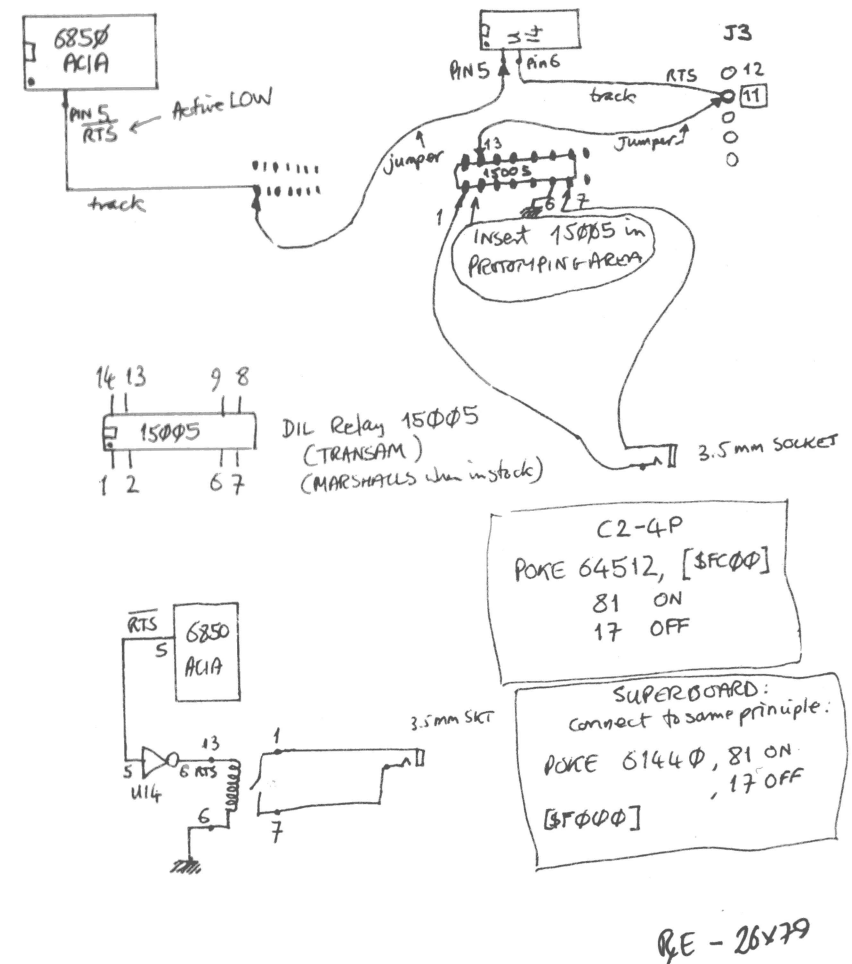 6850
ACIA
PIN 5
RTS
Active LOW
track
jumper
U14
PIN 5
Pin 6
RTS
track
J3
12
11
Jumper
13
15005
1
6
7
Insert 15005 in
PROTOTYPING AREA
14 13 9 8
15005
1 2 6 7
DIL Relay 15005
(TRANSAM)
(MARSHALLS when in stock)
3.5mm SOCKET
C2-4P
POKE 64512, [$FC00]
81 ON
17 OFF
RTS
5
6850
ACIA
5
U14
6 RTS
13
6
1
7
3.5mm SKT
SUPERBOARD:
connect to same principle:
POKE 61440, 81 ON
, 17 OFF
[$F000]